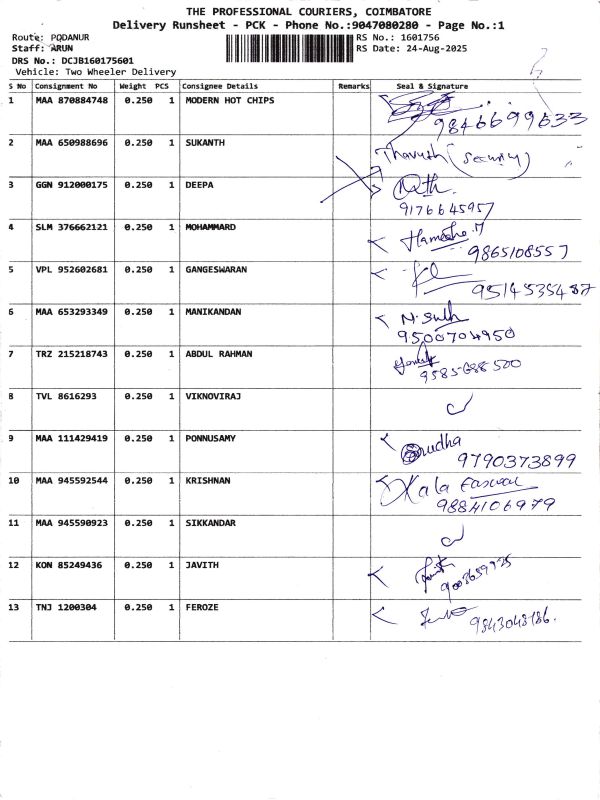 THE PROFESSIONAL COURIERS, COIMBATORE
Delivery Runsheet - PCK - Phone No.:9047080280 - Page No.:1
Route: PODANUR RS No.: 1601756
Staff: ARUN RS Date: 24-Aug-2025
DRS No.: DCJB160175601
Vehicle: Two Wheeler Delivery
S No Consignment No Weight PCS Consignee Details Remarks Seal & Signature
1 MAA 870884748 0.250 1 MODERN HOT CHIPS
9846699633
2 MAA 650988696 0.250 1 SUKANTH
(Security)
3 GGN 912000175 0.250 1 DEEPA
9176645957
4 SLM 376662121 0.250 1 MOHAMMARD
9865108557
5 VPL 952602681 0.250 1 GANGESWARAN
9514535487
6 MAA 653293349 0.250 1 MANIKANDAN
9500704950
7 TRZ 215218743 0.250 1 ABDUL RAHMAN
9585688500
8 TVL 8616293 0.250 1 VIKNOVIRAJ
9 MAA 111429419 0.250 1 PONNUSAMY
9790373899
10 MAA 945592544 0.250 1 KRISHNAN Kala
9884106979
11 MAA 945590923 0.250 1 SIKKANDAR
12 KON 85249436 0.250 1 JAVITH
13 TNJ 1200304 0.250 1 FEROZE
9843048186.